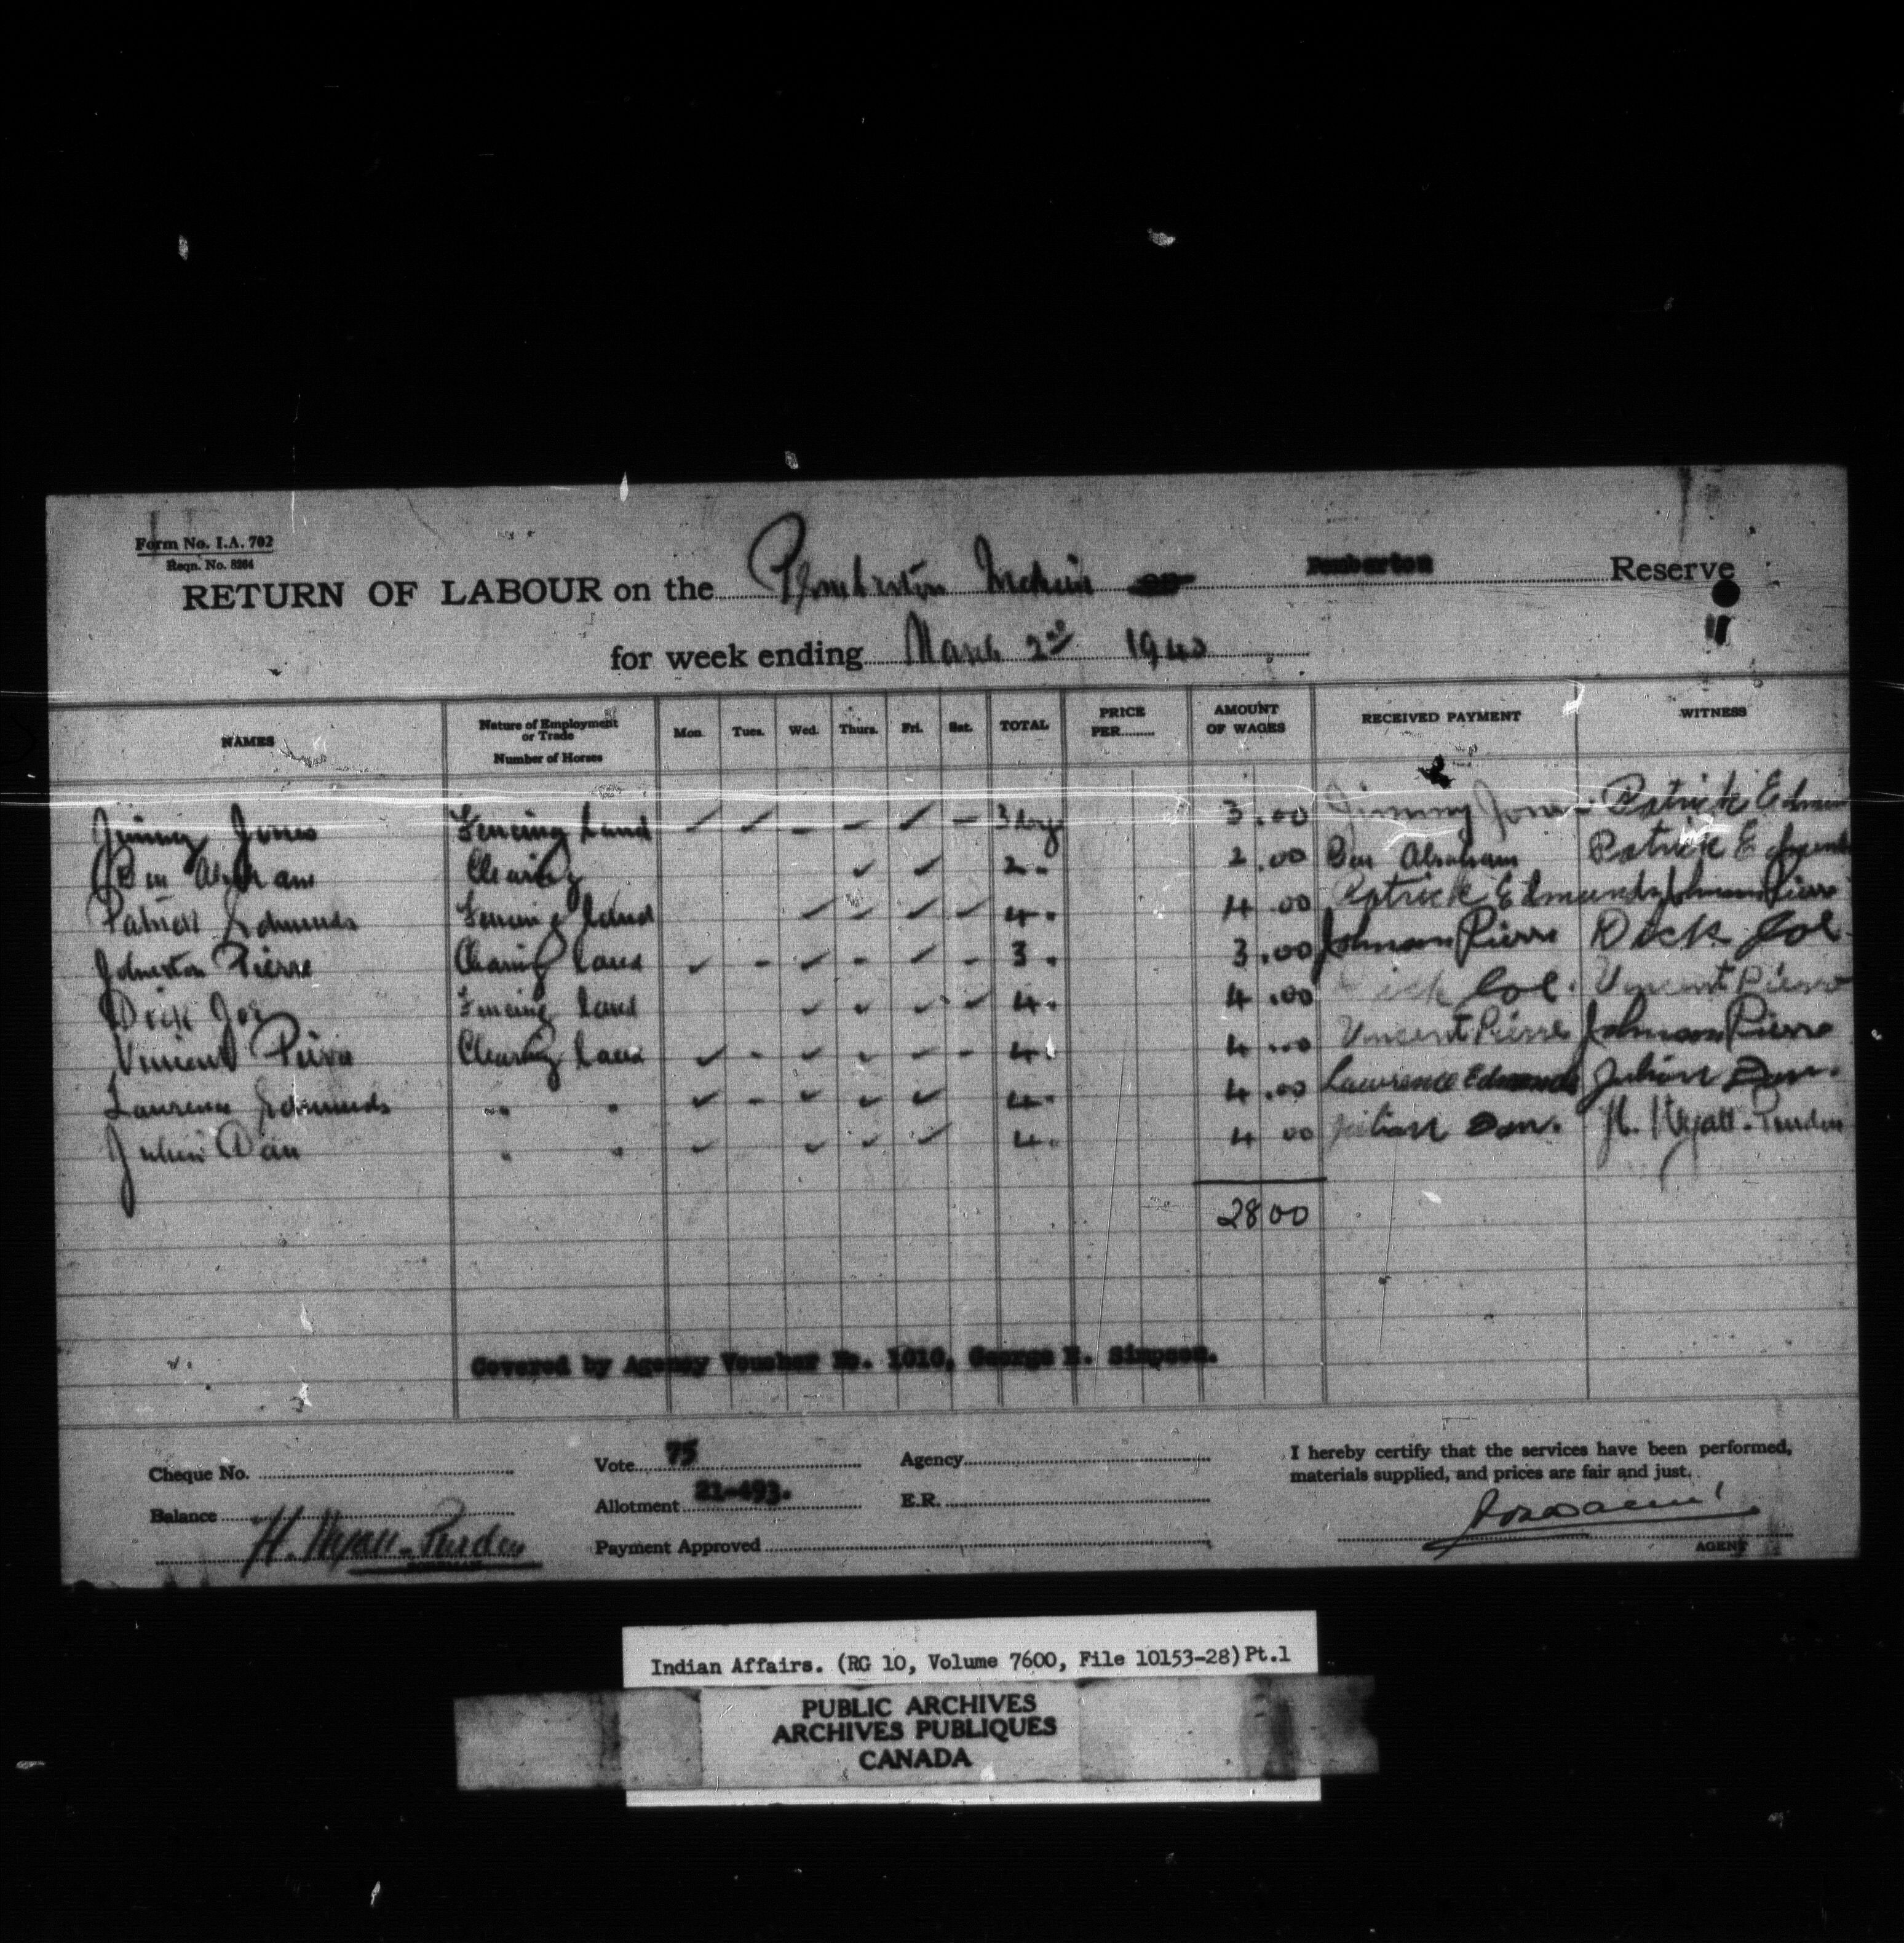 Form No. I.A. 702
Reqn. No. 8264
RETURN OF LABOUR on the Pemberton Pemberton Reserve
for week ending March 2nd 1940
NAMES Nature of Employment or Trade Number of Horses Mon. Tues. Wed. Thurs. Fri. Sat. TOTAL PRICE PER........ AMOUNT OF WAGES RECEIVED PAYMENT WITNESS
Jimmy Jones Fencing Land ✓ ✓ - - ✓ - 3 days 3.00 Jimmy Jones Patrick Edmun
Ben Abraham Clearing ✓ ✓ 2 " 2.00 Ben Abraham Patrick
Patrick Edmunds Fencing land ✓ ✓ ✓ ✓ 4 " 4 00 Patrick Edmunds Johnson Pierre
Johnston Pierre Clearing land ✓ - ✓ - ✓ - 3 " 3.00 Johnson Pierre Dick Joe
Dick Joe Fencing land ✓ ✓ ✓ ✓ 4 " 4.00 Dick Joe. Vincent Pierre
Vincent Pierre Clearing land ✓ - ✓ ✓ ✓ - 4 4.00 Vincent Pierre Johnson Pierre
Laurence Edmunds " " ✓ - ✓ ✓ ✓ 4 " 4.00 Lawrence Edmunds Julian Dan.
Julien Dan " " ✓ ✓ ✓ ✓ 4 " 4 00 Julian Dan. H. Wyatt-Purden
28 00
Covered by Agency Voucher No. 1010, George E. Simpson.
Cheque No. Vote 75 Agency
I hereby certify that the services have been performed, materials supplied, and prices are fair and just.
Balance Allotment 21-493. E.R.
H. Wyatt-Purden Payment Approved
AGENT
Indian Affairs. (RG 10, Volume 7600, File 10153-28) Pt.1
PUBLIC ARCHIVES
ARCHIVES PUBLIQUES
CANADA